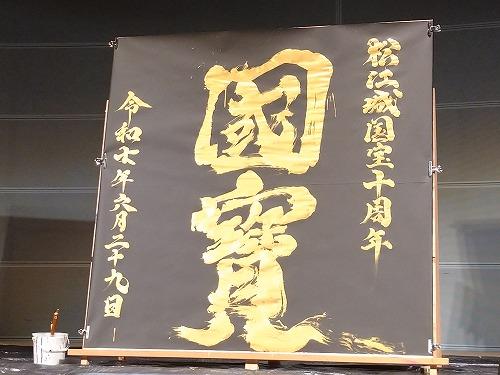 松江城国宝十周年
國寳
令和七年六月二十九日